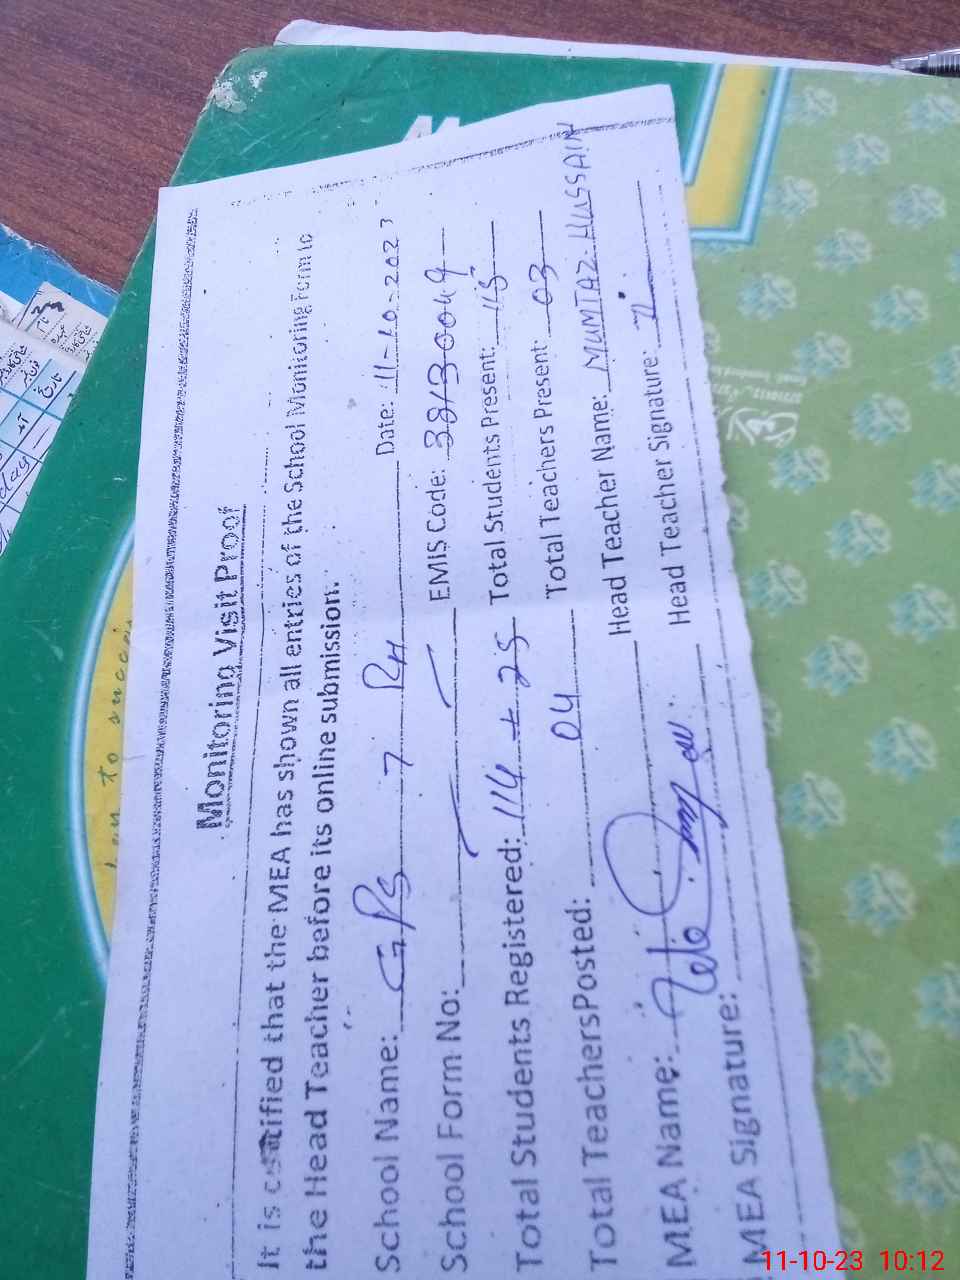 Monitoring Visit Proof
It is certified that the MEA has shown all entries of the School Monitoring Form to
the Head Teacher before its online submission.
School Name: GPS 7 RH Date: 11-10-2023
School Form No: EMIS Code: 38130049
Total Students Registered: 114 + 25 Total Students Present: 115
Total Teachers Posted: 04 Total Teachers Present: 03
MEA Name: Head Teacher Name: MUMTAZ HUSSAIN
MEA Signature: Head Teacher Signature:
11-10-23 10:12